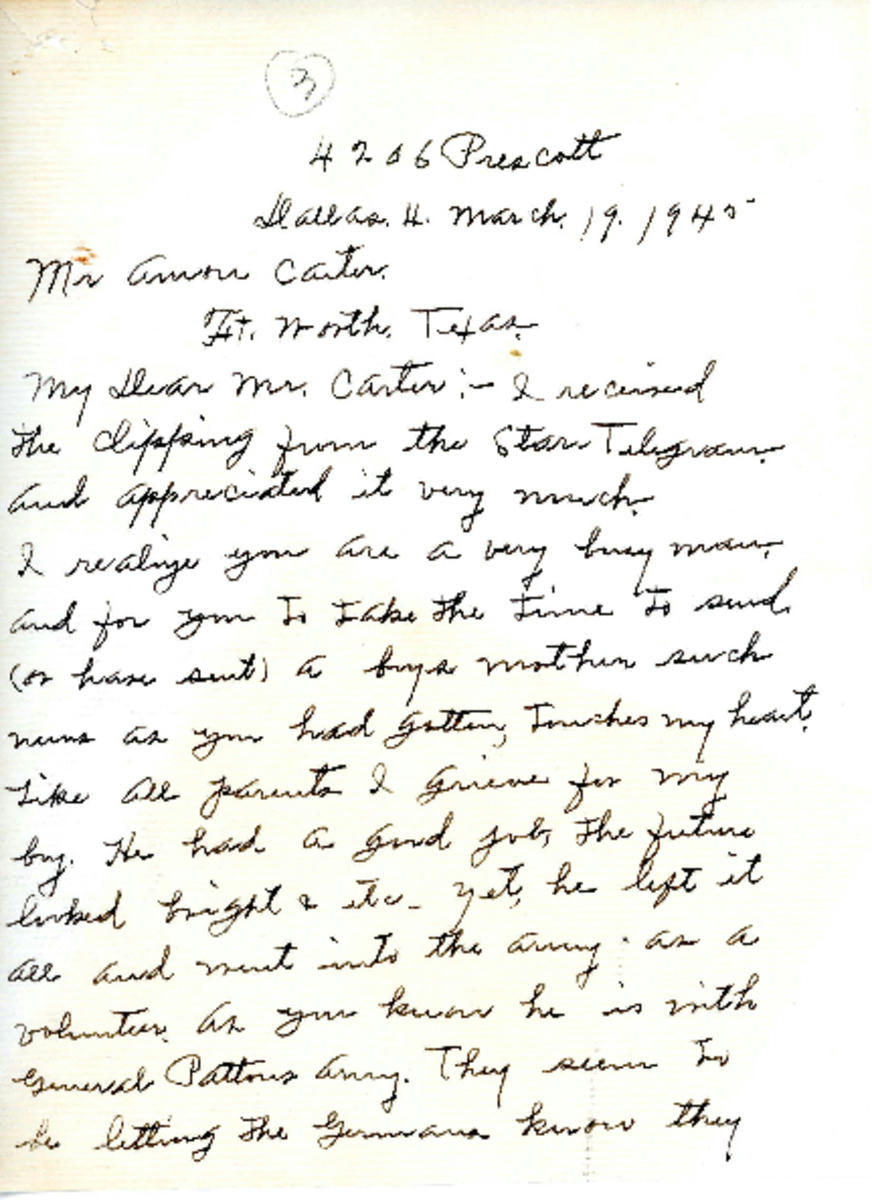 3
4206 Prescott
Dallas. 4. March. 19. 1945
Mr Amon Carter.
Ft. Worth. Texas.
My Dear Mr. Carter:- I received
the clipping from the Star Telegram.
and appreciated it very much.
I realize you are a very busy man,
and for you to take the time to send
(or have sent) a boys mother such
news as you had gotten, touches my heart.
Like all parents I grieve for my
boy. He had a good job, the future
looked bright & etc- yet, he left it
all and went into the army as a
volunteer. As you know he is with
General Pattons Army. They seem to
be letting the Germans know they